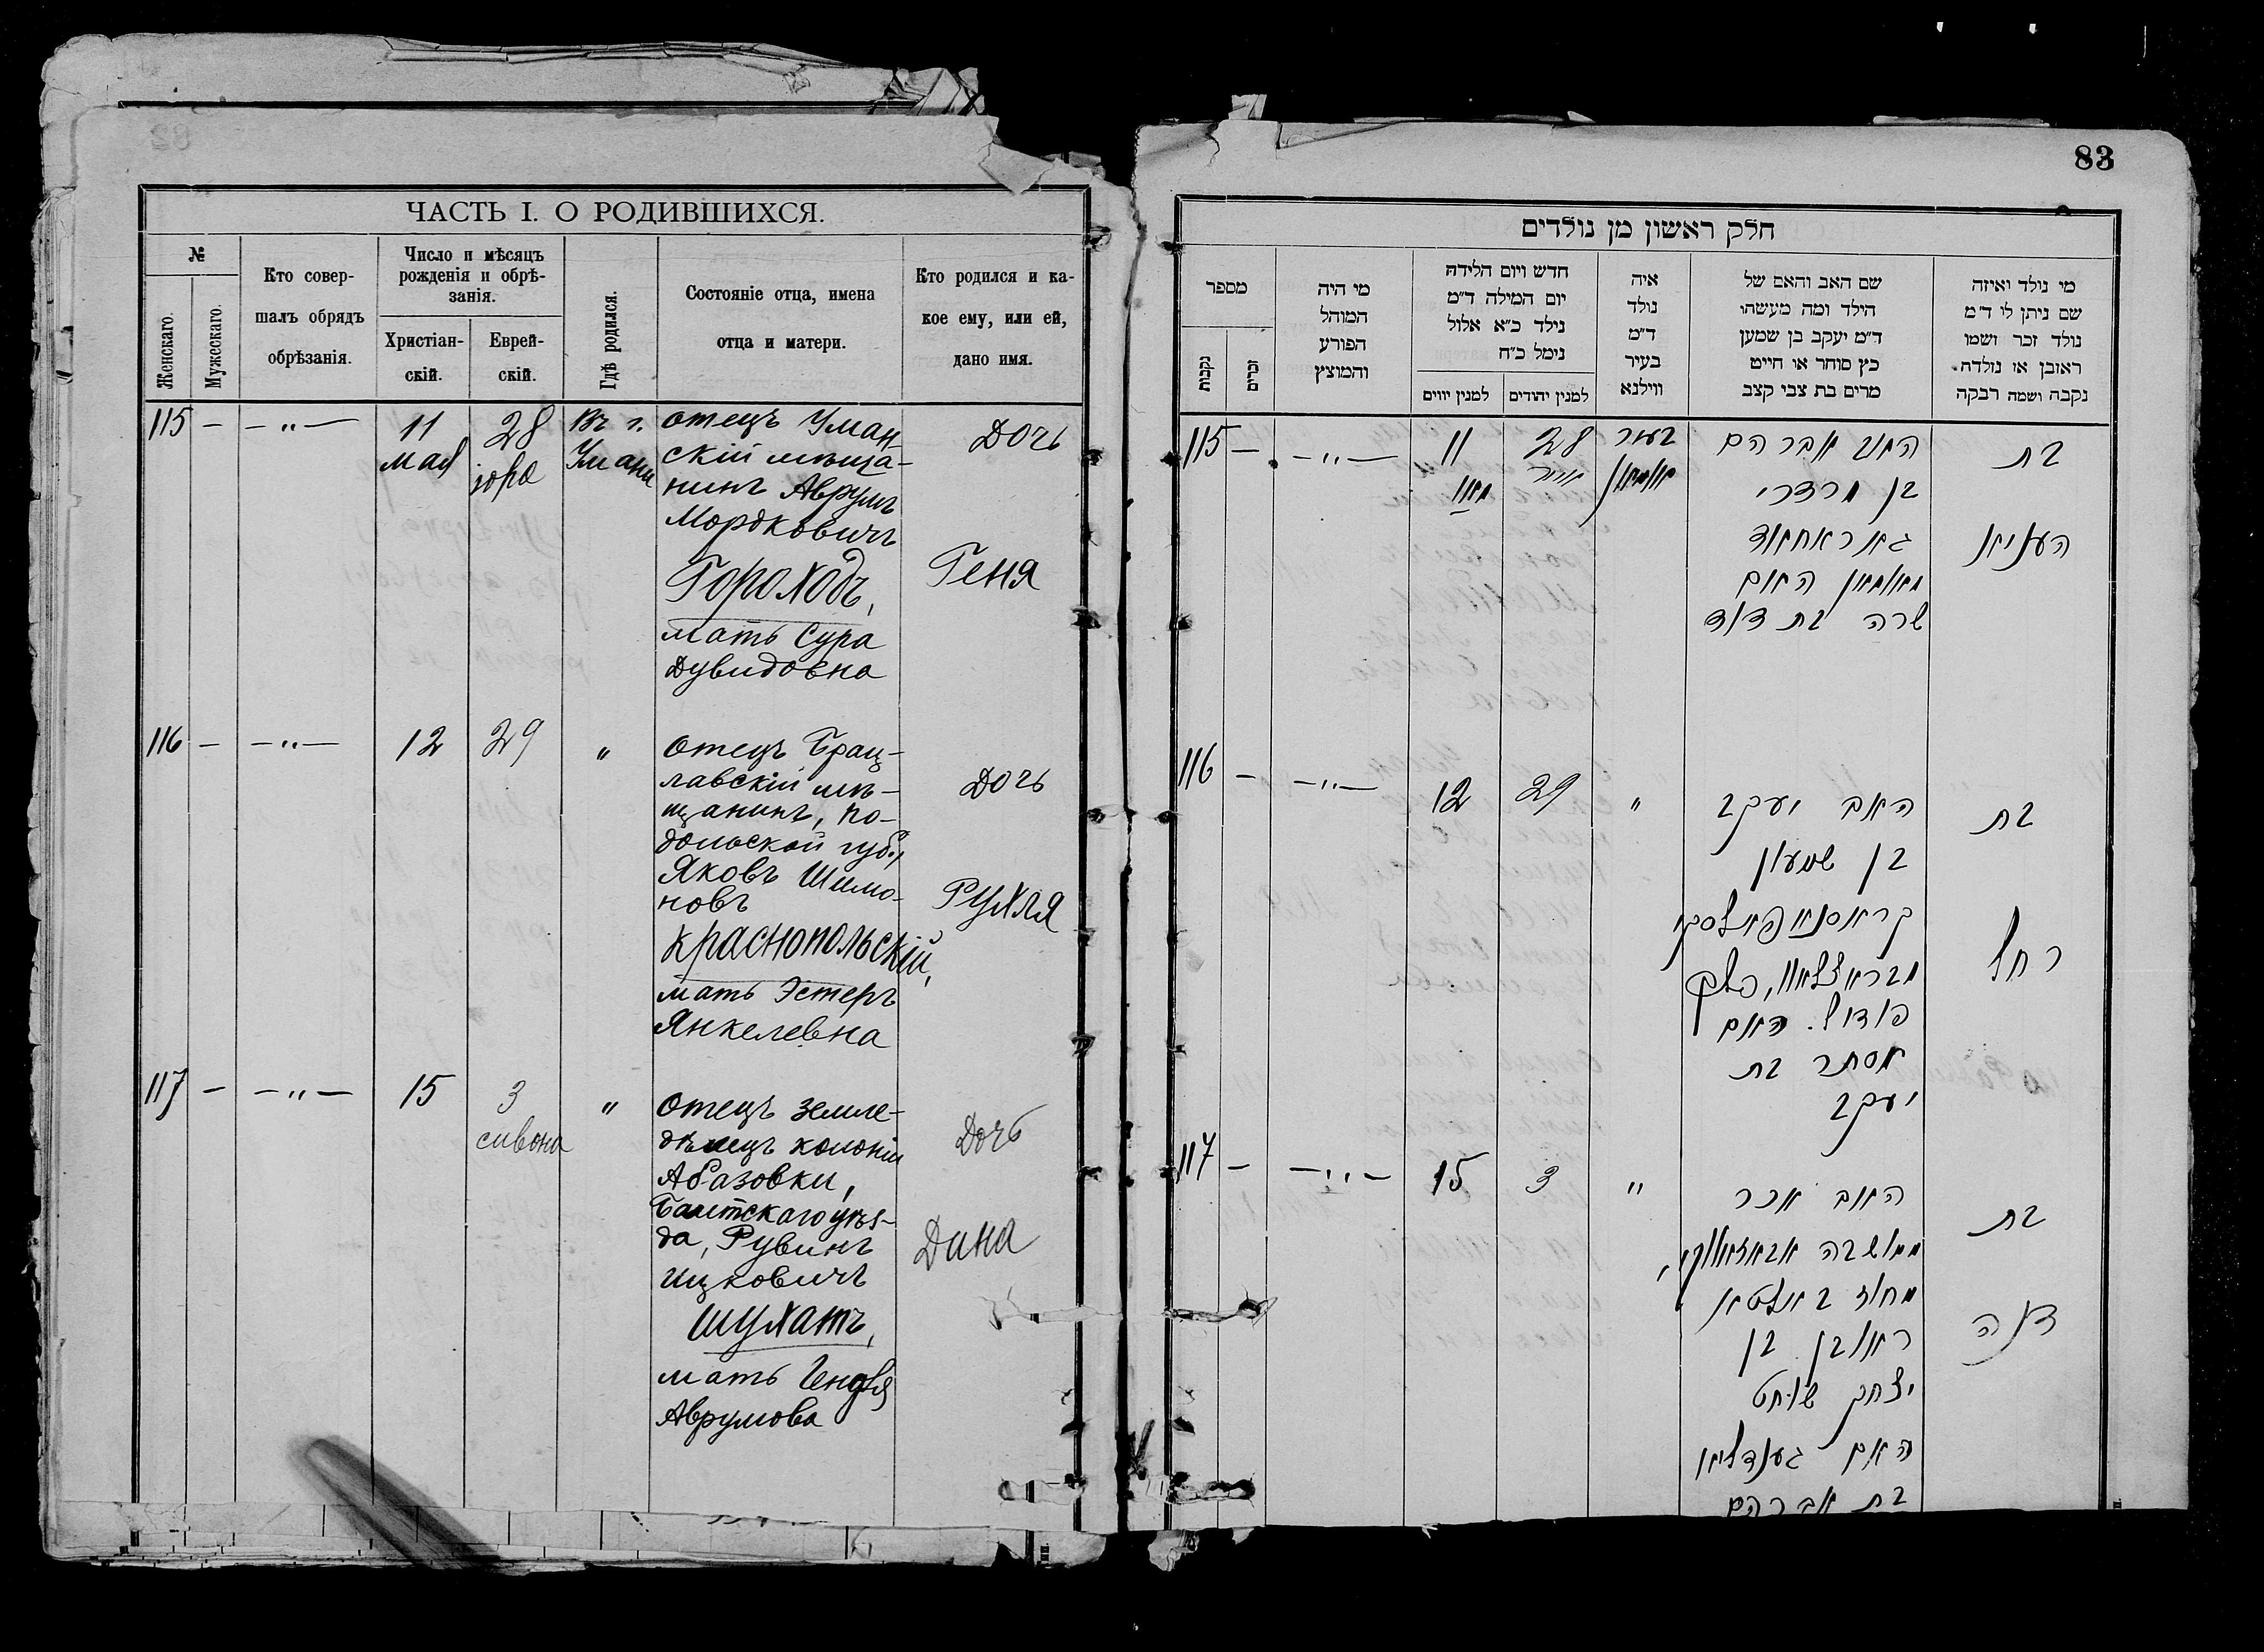 ЧАСТЬ I. О РОДИВШИХСЯ.
№
Женскаго.
Мужескаго.
Кто совер-
шалъ обрядъ
обрѣзанія.
Число и мѣсяцъ
рожденія и обрѣ-
занія.
Христіан-
скій.
Еврей-
скій.
Гдѣ родился.
Состояніе отца, имена
отца и матери.
Кто родился и ка-
кое ему, или ей,
дано имя.
115 — — „ —
11
мая
28
іора
Въ г.
Умани
отецъ Уман-
скій мѣща-
нинъ Аврумъ
Мордковичъ
Гороходъ,
мать Сура
Дувидовна
Дочь
Геня
116 — — „ —
12
29
„
отецъ Брац-
лавскій мѣ-
щанинъ, по-
дольской губ.,
Яковъ Шимо-
новъ
Краснопольскій,
мать Эстеръ
Янкелевна
Дочь
Рухля
117 — — „ —
15
3
сивона
„
отецъ земле-
дѣлецъ колоніи
Абазовки,
Балтскаго уѣз-
да, Рувинъ
Ицковичъ
Шухатъ,
мать Гендля
Аврумова
Дочь
Дина
83
חלק ראשון מן נולדים
מספר
נקבות
זכרים
מי היה
המוהל
הפורע
והמוצץ
חדש ויום הלידה
יום המילה ד״מ
נילד כ״א אלול
נימל כ״ח
למנין יווים
למנין יהודים
איה
נולד
ד״מ
בעיר
ווילנא
שם האב והאם של
הילד ומה מעשהו
ד״מ יעקב בן שמען
כץ סוחר או חייט
מרים בת צבי קצב
מי נולד ואיזה
שם ניתן לו ד״מ
נולד זכר ושמו
ראובן או נולדה
נקבה ושמה רבקה
115 — — „ —
11
מאי
28
אייר
בעיר
אומאן
האב אברהם
בן מרדכי
גאראחאד
מאומאן האם
שרה בת דוד
בת
העניא
116 — — „ —
12
29
„
האב יעקב
בן שמעון
קראסנאפאלסקי
מבראצלאוו, פלך
פודול. האם
אסתר בת
יעקב
בת
רחל
117 — — „ —
15
3
„
האב אכר
ממושבה אבאזאווקי,
מחוז באלטא
ראובן בן
יצחק שוחט
האם גענדליא
בת אברהם
בת
דינה